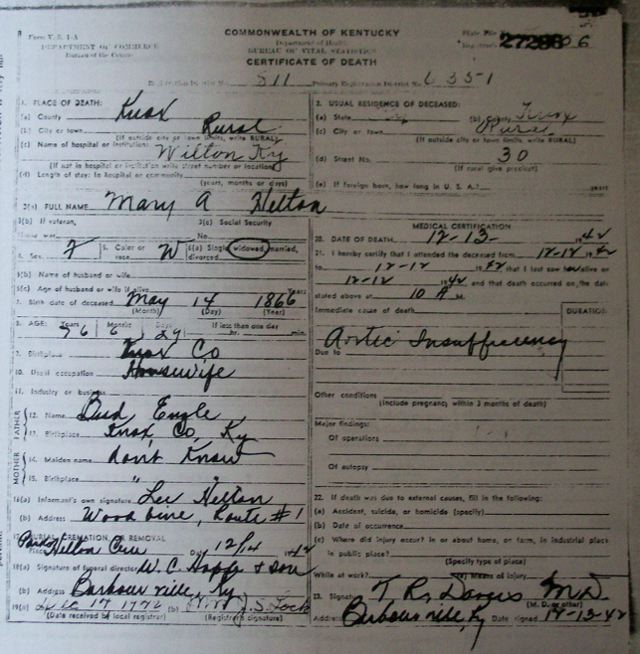 Form V. S. 1-A
DEPARTMENT OF COMMERCE
Bureau of the Census
COMMONWEALTH OF KENTUCKY
Department of Health
BUREAU OF VITAL STATISTICS
CERTIFICATE OF DEATH
State File No.
Registrar's
Registration District No. 511 Primary Registration District No. 6351
1. PLACE OF DEATH:
(a) County Knox
(b) City or town Rural
(If outside city or town limits, write RURAL)
(c) Name of hospital or institution: Wilton Ky
(If not in hospital or institution write street number or location)
(d) Length of stay: In hospital or community
(years, months or days)
2. USUAL RESIDENCE OF DECEASED:
(a) State Ky (b) County Knox
(c) City or town Rural
(If outside city or town limits, write RURAL)
(d) Street No. 30
(If rural give precinct)
(e) If foreign born, how long in U. S. A.? years
3(a) FULL NAME Mary A Helton
3(b) If veteran, 3(c) Social Security
name war No.
4. Sex F 5. Color or race W 6(a) Single, widowed, married, divorced
6(b) Name of husband or wife
6(c) Age of husband or wife if alive Years
7. Birth date of deceased May 14 1866
(Month) (Day) (Year)
8. AGE: Years Months Days If less than one day
76 6 29 hr. min
9. Birthplace Knox Co
10. Usual occupation Housewife
11. Industry or business
FATHER
12. Name Bud Engle
13. Birthplace Knox Co, Ky
MOTHER
14. Maiden name don't Know
15. Birthplace "
16(a) Informant's own signature Lee Helton
(b) Address Woodbine, Route #1
17. BURIAL, CREMATION, OR REMOVAL
Place Helton Cem Day 12/14 42
18(a) Signature of funeral director W. C. Hopper & son
(b) Address Barbourville, Ky
19(a) Dec 17 1942 (b)
(Date received by local registrar) (Registrar's signature)
MEDICAL CERTIFICATION
20. DATE OF DEATH 12-13- 1942
21. I hereby certify that I attended the deceased from 12-12 1942
to 12-12 1942 that I last saw alive on
12-12 1942 and that death occurred on the date
stated above at 10 A M.
Immediate cause of death
DURATION
Aortic Insufficiency
Due to
Other conditions
(Include pregnancy within 3 months of death)
Major findings:
Of operations
Of autopsy
22. If death was due to external causes, fill in the following:
(a) Accident, suicide, or homicide (specify)
(b) Date of occurrence
(c) Where did injury occur? in or about home, on farm, in industrial place
in public place?
(Specify type of place)
While at work? (e) Means of injury
23. Signature T. R. Davies M D
(M. D. or other)
Address Barbourville, Ky Date signed 12-13-42